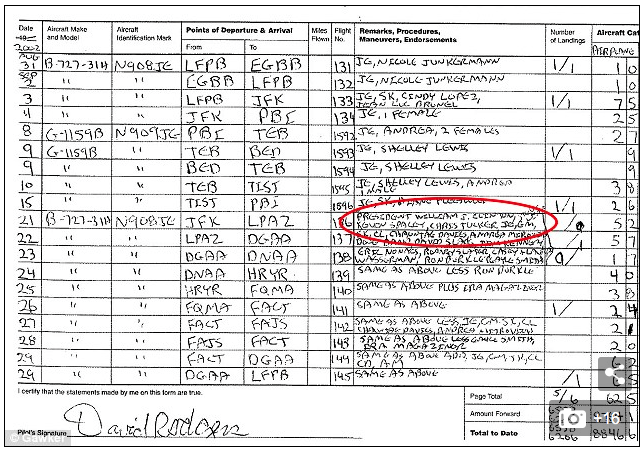 Date
2002
Aircraft Make and Model
Aircraft Identification Mark
Points of Departure & Arrival
From
To
Miles Flown
Flight No.
Remarks, Procedures, Maneuvers, Endorsements
Number of Landings
Aircraft Cat
AIRPLANE
AUG
31 B-727-31H N908JE LFPB EGBB 131 JE, NICOLE JUNKERMANN 1/1 10
SEP
2 " " EGBB LFPB 132 JE, NICOLE JUNKERMANN 10
3 " " LFPB JFK 133 JE, SK, CINDY LOPEZ, JEAN LUC BRUNEL 1/1 75
4 " " JFK PBI 134 JE, 1 FEMALE 25
8 G-1159B N909JE PBI TEB 1592 JE, ANDREA, 2 FEMALES 2
9 G-1159B TEB BED 1593 JE, SHELLEY LEWIS 1/1 9
9 " " BED TEB 1594 JE, SHELLEY LEWIS 9
10 " " TEB TIST 1595 JE, SHELLEY LEWIS, ANDREA 1 MALE 38
15 " " TIST PBI 1596 JE, SK, 1/1 26
21 B-727-31H N908JE JFK LPAZ 136 PRESIDENT WILLIAM J. CLINTON, KEVIN SPACEY, CHRIS TUCKER, JE, GM, 52
SK, CL, CHAUNTAE DAVIES, ANDREA
22 " " LPAZ DGAA 137 DOUG BAND, DAVID SLACK, 5
23 " " DGAA DNAA 138 ERIC NONACS, RODNEY SLATER, 1
WASSERMAN, RON BURKLE, GAYLE SMITH
24 " " DNAA HRYR 139 SAME AS ABOVE LESS RON BURKLE 40
25 " " HRYR FQMA 140 SAME AS ABOVE PLUS IRA MAGAZINER 38
26 " " FQMA FACT 141 SAME AS ABOVE 1/ 24
27 " " FACT FAJS 142 SAME AS ABOVE LESS, JE, GM, SK, CL
CHAUNTAE DAVIES, ANDREA 21
28 " " FAJS FACT 143 SAME AS ABOVE LESS GAYLE SMITH, IRA MAGAZINER 20
29 " " FACT DGAA 144 SAME AS ABOVE ADD, JE, GM, SK, CL
CD, AM 62
29 " " DGAA LFPB 145 SAME AS ABOVE /1
I certify that the statements made by me on this form are true.
Pilot's Signature David Rodgers
Page Total 5/6 625
Amount Forward
Total to Date 6206 8846
+16
© Gawker